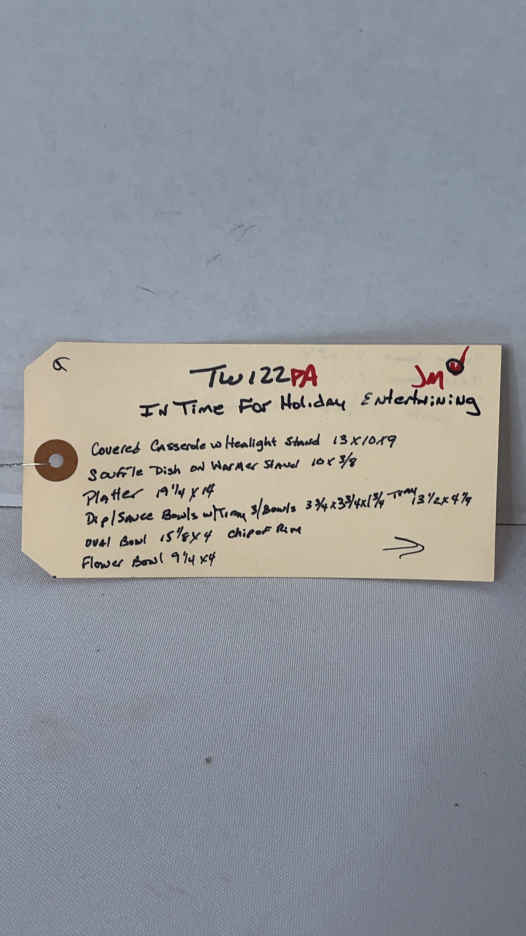 TW122PA JM
In Time For Holiday Entertwining
Covered Casserole w/Tealight Stand 13x10x9
Souffle Dish on Warmer Stand 10x3/8
Platter 19 1/4 x 14
Dip/Sauce Bowls w/Tray 3/Bowls 3 3/4x3 3/4x1 3/4 Tray 13 1/2x4
Oval Bowl 15 7/8x4 chip of Rim
Flower Bowl 9 1/4x4